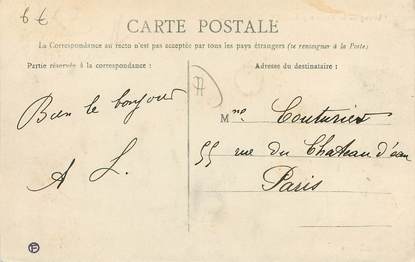 6 €
CARTE POSTALE
La Correspondance au recto n'est pas acceptée par tous les pays étrangers (se renseigner à la Poste)
Partie réservée à la correspondance :
Adresse du destinataire :
Bien le bonjour
A L.
Mme Couturier
55 rue du Chateau d'eau
Paris